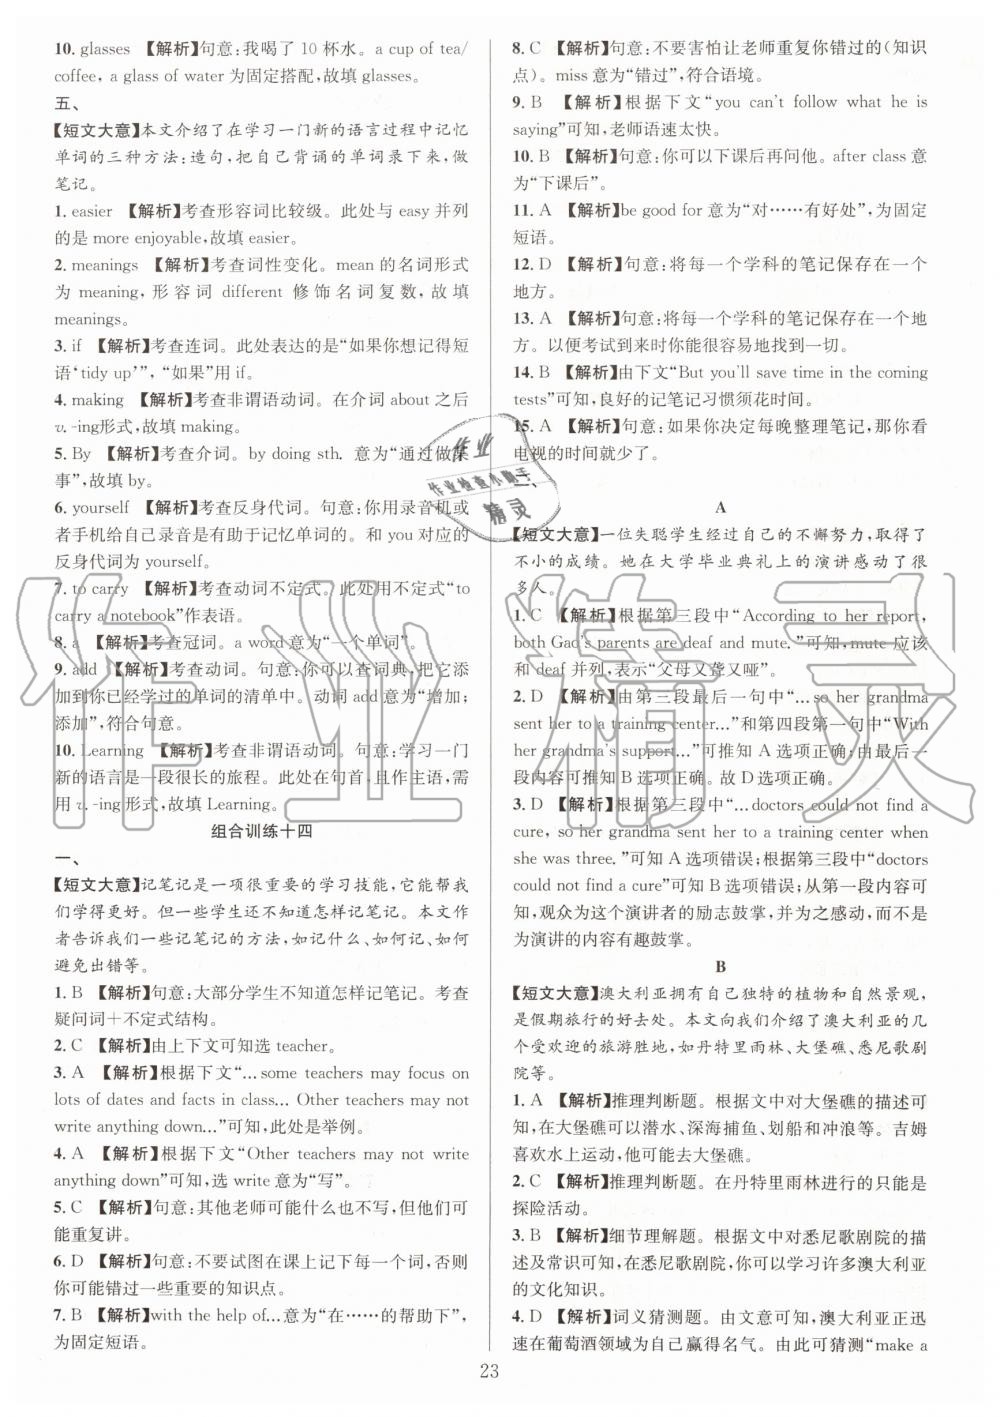 10. glasses 【解析】句意:我喝了 10 杯水。a cup of tea/
coffee, a glass of water 为固定搭配,故填 glasses。
五、
【短文大意】本文介绍了在学习一门新的语言过程中记忆
单词的三种方法:造句,把自己背诵的单词录下来,做
笔记。
1. easier 【解析】考查形容词比较级。此处与 easy 并列
的是 more enjoyable,故填 easier。
2. meanings 【解析】考查词性变化。mean 的名词形式
为 meaning,形容词 different 修饰名词复数,故填
meanings。
3. if 【解析】考查连词。此处表达的是“如果你想记得短
语‘tidy up’”,“如果”用 if。
4. making 【解析】考查非谓语动词。在介词 about 之后
v. -ing形式,故填 making。
5. By 【解析】考查介词。by doing sth. 意为“通过做某
事”,故填 by。
6. yourself 【解析】考查反身代词。句意:你用录音机或
者手机给自己录音是有助于记忆单词的。you 对应的
反身代词为 yourself。
7. to carry 【解析】考查动词不定式。此处用不定式“to
carry a notebook”作表语。
8. a 【解析】考查冠词。a word 意为“一个单词”。
9. add 【解析】考查动词。句意:你可以查词典,把它添
加到你已经学过的单词的清单中。动词 add 意为“增加;
添加”,符合句意。
10. Learning 【解析】考查非谓语动词。句意:学习一门
新的语言是一段很长的旅程。此处在句首,且作主语,需
用 v. -ing 形式,故填 Learning。
组合训练十四
一、
【短文大意】记笔记是一项很重要的学习技能,它能帮我
们学得更好。但一些学生还不知道怎样记笔记。本文作
者告诉我们一些记笔记的方法,如记什么、如何记、如何
避免出错等。
1. B 【解析】句意:大部分学生不知道怎样记笔记。考查
疑问词+不定式结构。
2. C 【解析】由上下文可知选 teacher。
3. A 【解析】根据下文“... some teachers may focus on
lots of dates and facts in class... Other teachers may not
write anything down...”可知,此处是举例。
4. A 【解析】根据下文“Other teachers may not write
anything down”可知,选 write 意为“写”。
5. C 【解析】句意:其他老师可能什么也不写,但他们可
能重复讲。
6. D 【解析】句意:不要试图在课上记下每一个词,否则
你可能错过一些重要的知识点。
7. B 【解析】with the help of... 意为“在……的帮助下”,
为固定短语。
8. C 【解析】句意:不要害怕让老师重复你错过的(知识
点)。miss 意为“错过”,符合语境。
9. B 【解析】根据下文“you can't follow what he is
saying”可知,老师语速太快。
10. B 【解析】句意:你可以下课后再问他。after class 意
为“下课后”。
11. A 【解析】be good for 意为“对……有好处”,为固定
短语。
12. D 【解析】句意:将每一个学科的笔记保存在一个
地方。
13. A 【解析】句意:将每一个学科的笔记保存在一个地
方。以便考试到来时你能很容易地找到它们。
14. B 【解析】由下文“But you'll save time in the coming
tests”可知,良好的记笔记习惯须花时间。
15. A 【解析】句意:如果你决定每晚整理笔记,那你看
电视的时间就少了。
二、
A
【短文大意】一位失聪学生经过自己的不懈努力,取得了
不小的成绩。她在大学毕业典礼上的演讲感动了很
多人。
1. C 【解析】根据第三段中“According to her report,
both Gao's parents are deaf and mute.”可知,mute 应该
和 deaf 并列,表示“父母又聋又哑”。
2. D 【解析】由第三段最后一句中“... so her grandma
sent her to a training center...”和第四段第一句中“With
her grandma's support...”可推知 A 选项正确;由最后一
段内容可知 B 选项正确。故 D 选项正确。
3. D 【解析】根据第三段中“... doctors could not find a
cure, so her grandma sent her to a training center when
she was three. ”可知 A 选项错误;根据第三段中“doctors
could not find a cure”可知 B 选项错误;从第一段内容可
知,观众为这个演讲者的励志鼓掌,并为之感动,而不是
为演讲的内容有趣鼓掌。
B
【短文大意】澳大利亚拥有自己独特的植物和自然景观,
是假期旅行的好去处。本文向我们介绍了澳大利亚的几
个受欢迎的旅游胜地,如丹特里雨林、大堡礁、悉尼歌剧
院等。
1. A 【解析】推理判断题。根据文中对大堡礁的描述可
知,你在此可以潜水、深海捕鱼、划船和冲浪等。吉姆
喜欢水上运动,他可能去大堡礁。
2. C 【解析】推理判断题。在丹特里雨林进行的只能是
探险活动。
3. B 【解析】细节理解题。根据文中对悉尼歌剧院的描
述及常识可知,在悉尼歌剧院,你可学习许多澳大利亚
的文化知识。
4. D 【解析】词义猜测题。由文意可知,澳大利亚正迅
速在葡萄酒领域为自己赢得名气。由此可猜测“make a
23
作业
作业检查小助手
精灵
作业精灵